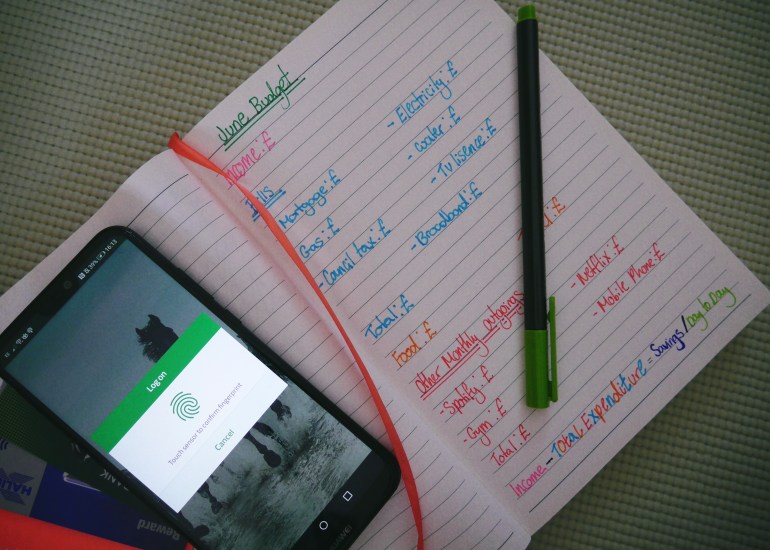 June Budget
Income:£
Bills
- Electricity:£
Mortgage:£
- :£
Gas:£
- Tv lisence:£
- Council tax:£
- Broadband:£
Total:£
Food:£
Other Monthly outgoings
- Spotify:£
- Netflix:£
- Gym:£
- Mobile Phone:£
Total:£
Income - Total Expenditure = Savings/Day to Day
16:13
Log on
Touch sensor to confirm fingerprint
Cancel
HUAWEI
HALI
Reward